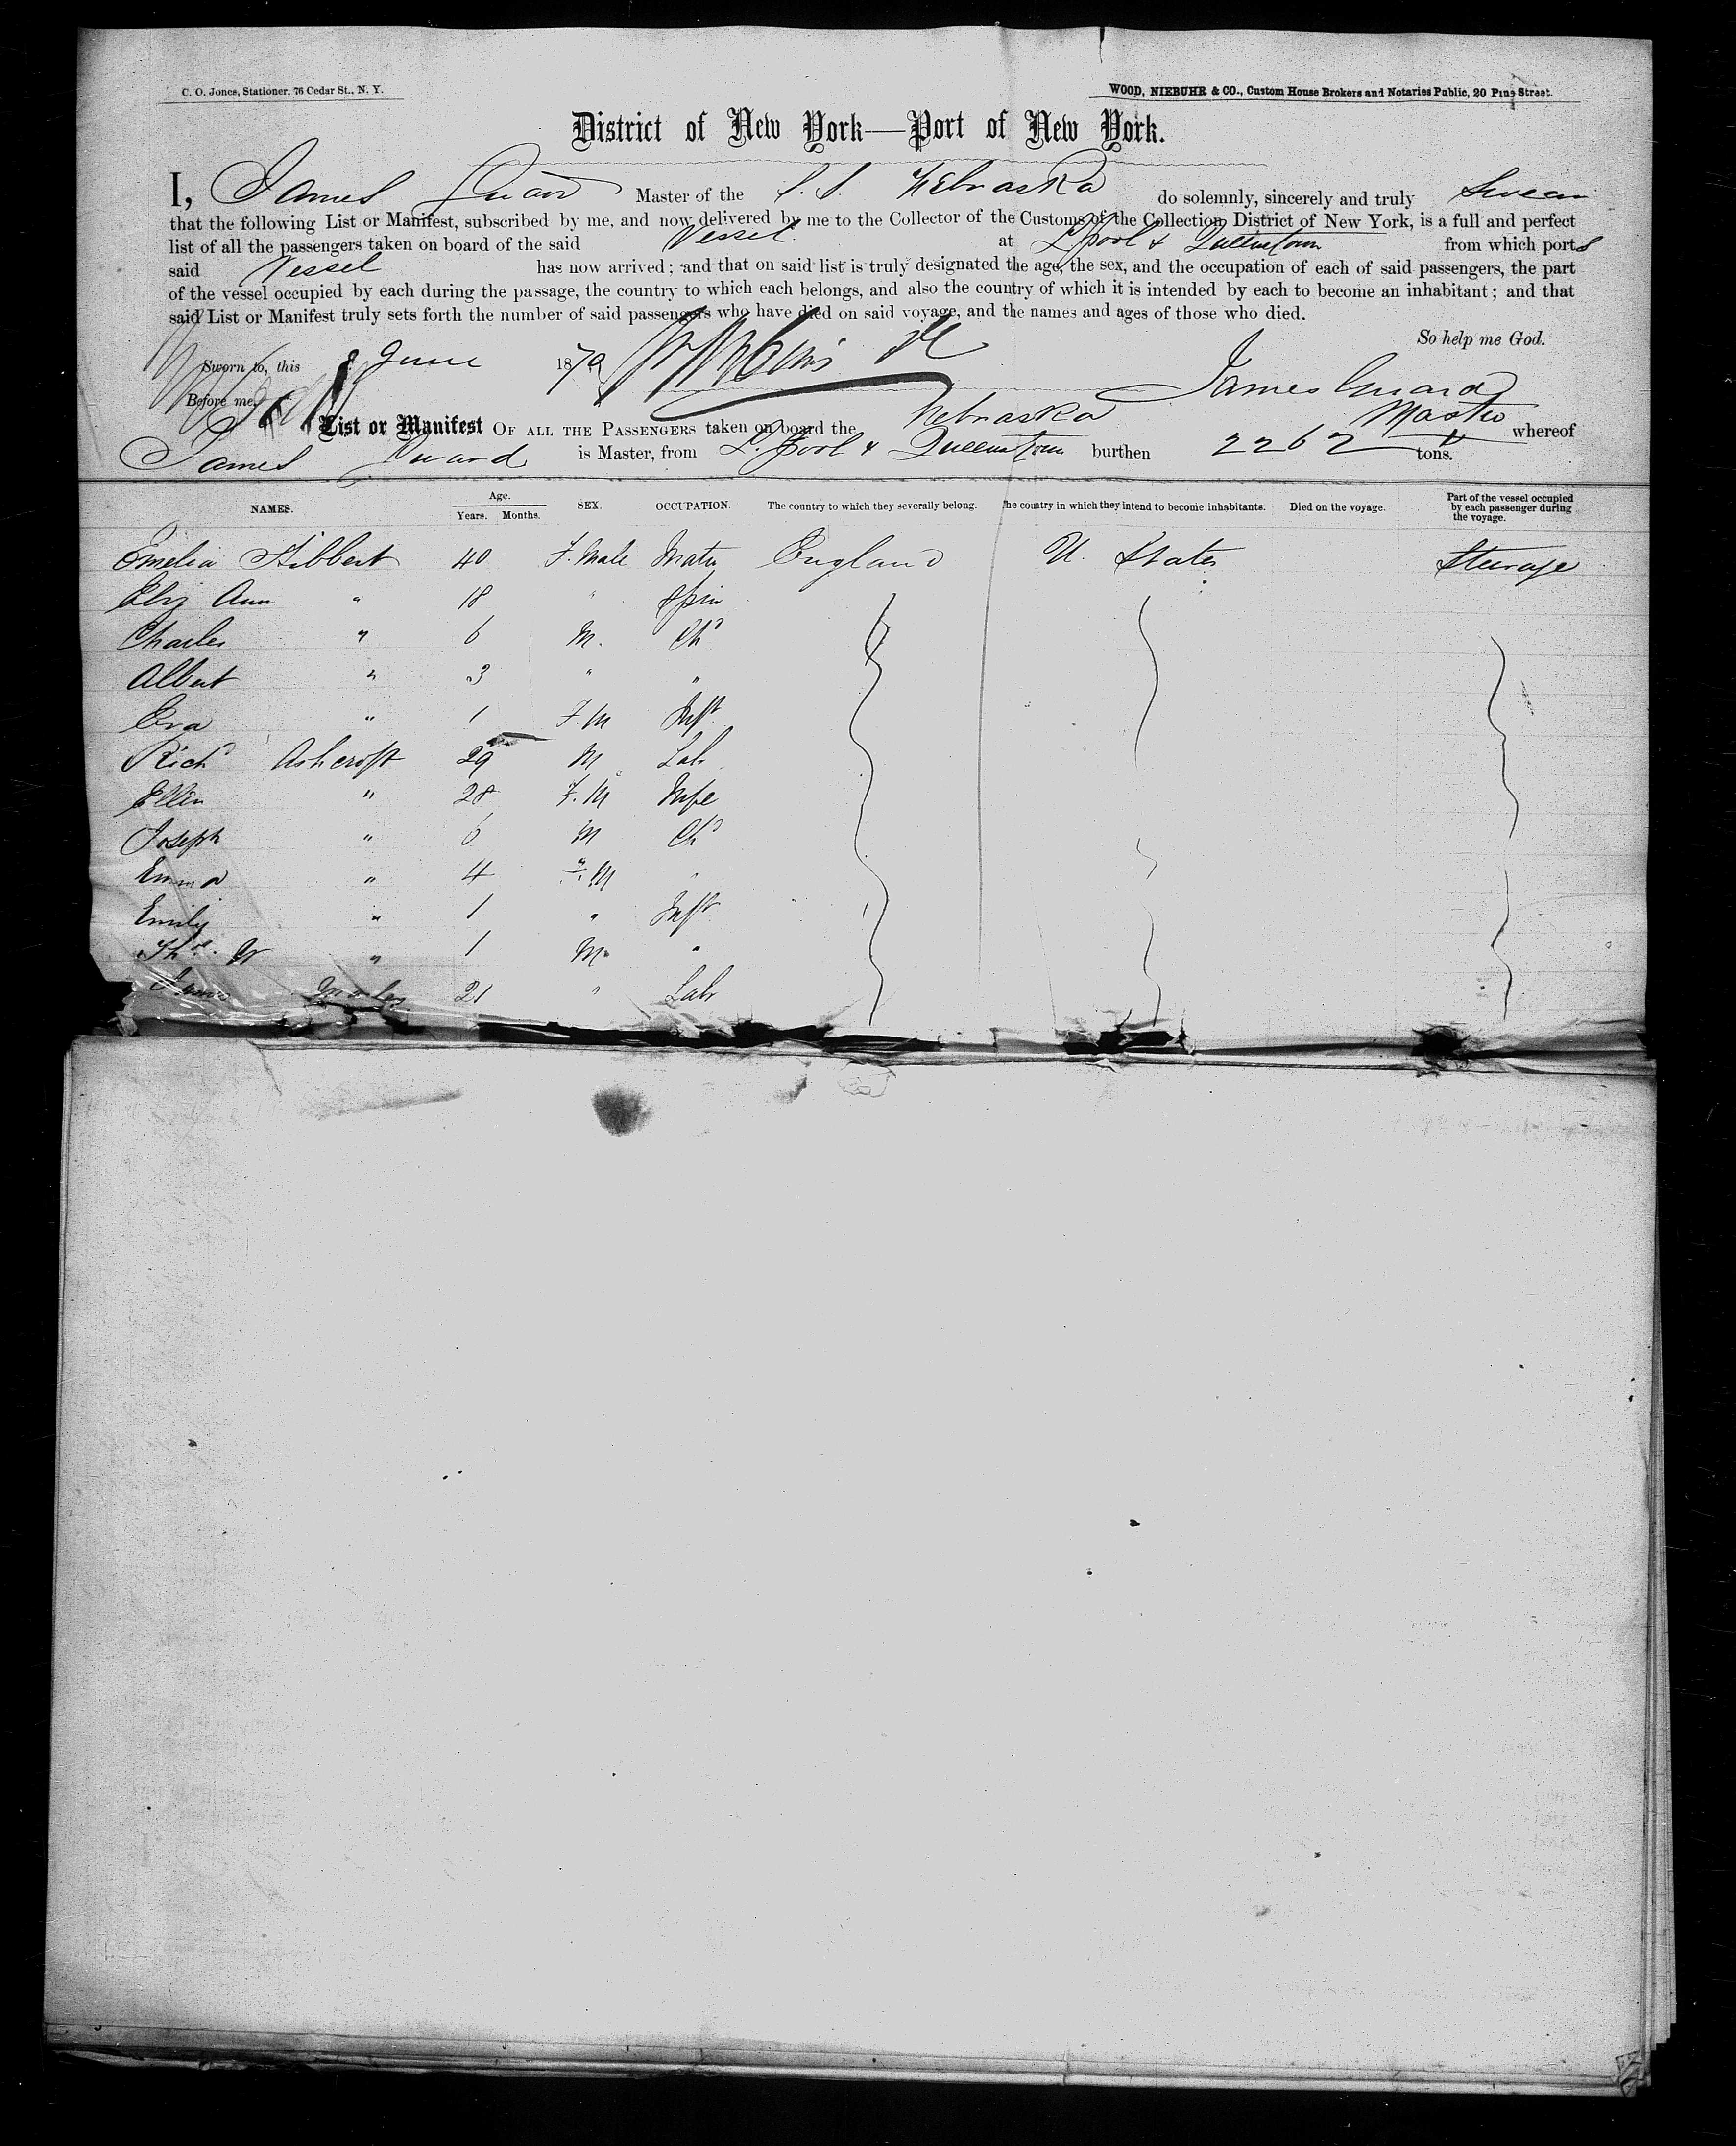 C. O. Jones, Stationer, 76 Cedar St., N. Y.
WOOD, NIEBUHR & CO., Custom House Brokers and Notaries Public, 20 Pine Street.
District of New York—Port of New York.
I, James Guard Master of the S. S. Nebraska do solemnly, sincerely and truly Swear
that the following List or Manifest, subscribed by me, and now delivered by me to the Collector of the Customs of the Collection District of New York, is a full and perfect
list of all the passengers taken on board of the said Vessel at L'pool & Queenstown from which ports
said Vessel has now arrived; and that on said list is truly designated the age, the sex, and the occupation of each of said passengers, the part
of the vessel occupied by each during the passage, the country to which each belongs, and also the country of which it is intended by each to become an inhabitant; and that
said List or Manifest truly sets forth the number of said passengers who have died on said voyage, and the names and ages of those who died.
So help me God.
Sworn to, this June 1879
James Guard
Before me,
Master
List or Manifest OF ALL THE PASSENGERS taken on board the Nebraska whereof
James Guard is Master, from L.pool & Queenstown burthen 2262 tons.
NAMES. Age. Years. Months. SEX. OCCUPATION. The country to which they severally belong. The country in which they intend to become inhabitants. Died on the voyage. Part of the vessel occupied by each passenger during the voyage.
Emelia Hibbert 40 F. Male Matn England U. States Steerage
Eliz Ann " 18 " Spin
Charles " 6 M. Chd
Albert " 3 " "
Eva " 1 F.M Inft
Richd Ashcroft 29 M Labr
Ellen " 28 F.M Wife
Joseph " 6 M Chd
Emma " 4 F.M "
Emily " 1 " Inft
Thos. W " 1 M "
James 21 " Labr